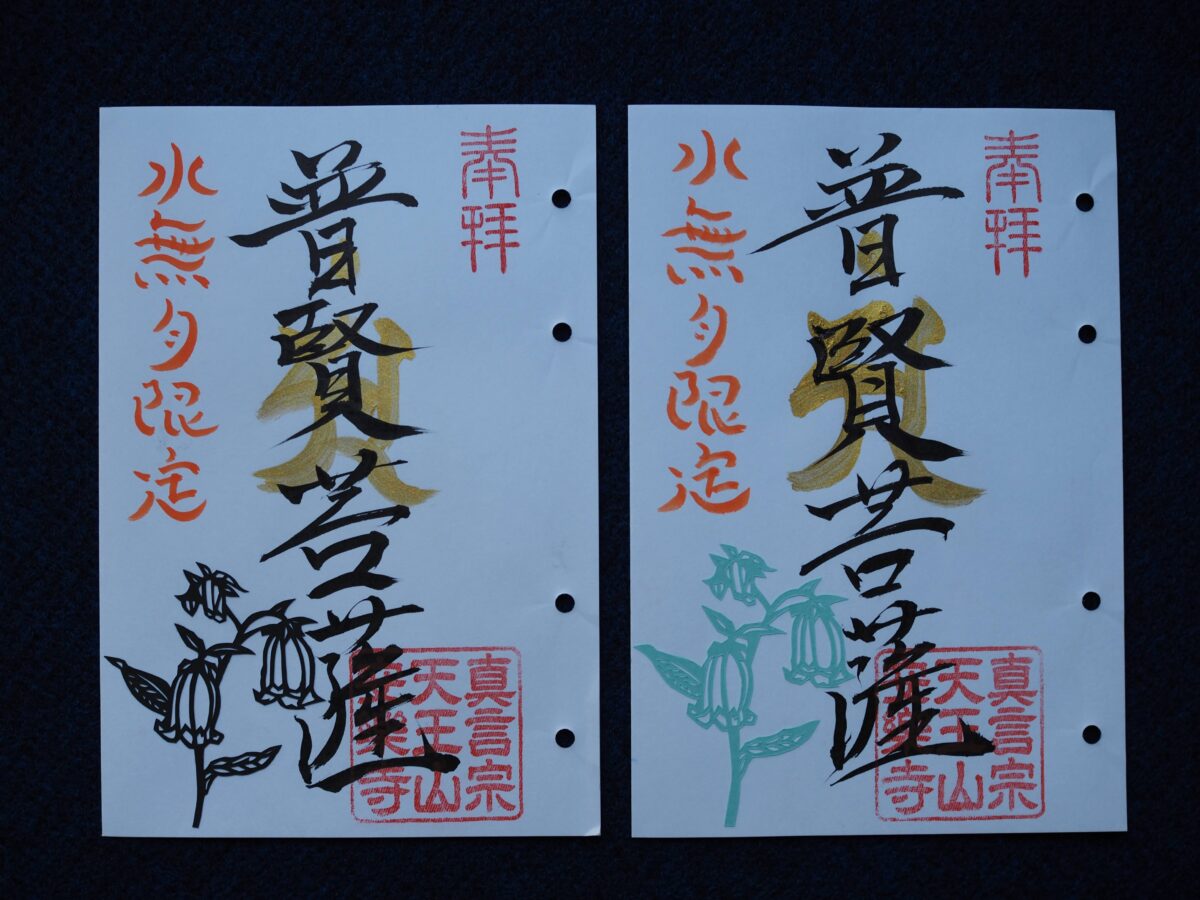 奉拝
普賢菩薩
水無月限定
真言宗
天王山
樂寺
奉拝
普賢菩薩
水無月限定
真言宗
天王山
樂寺